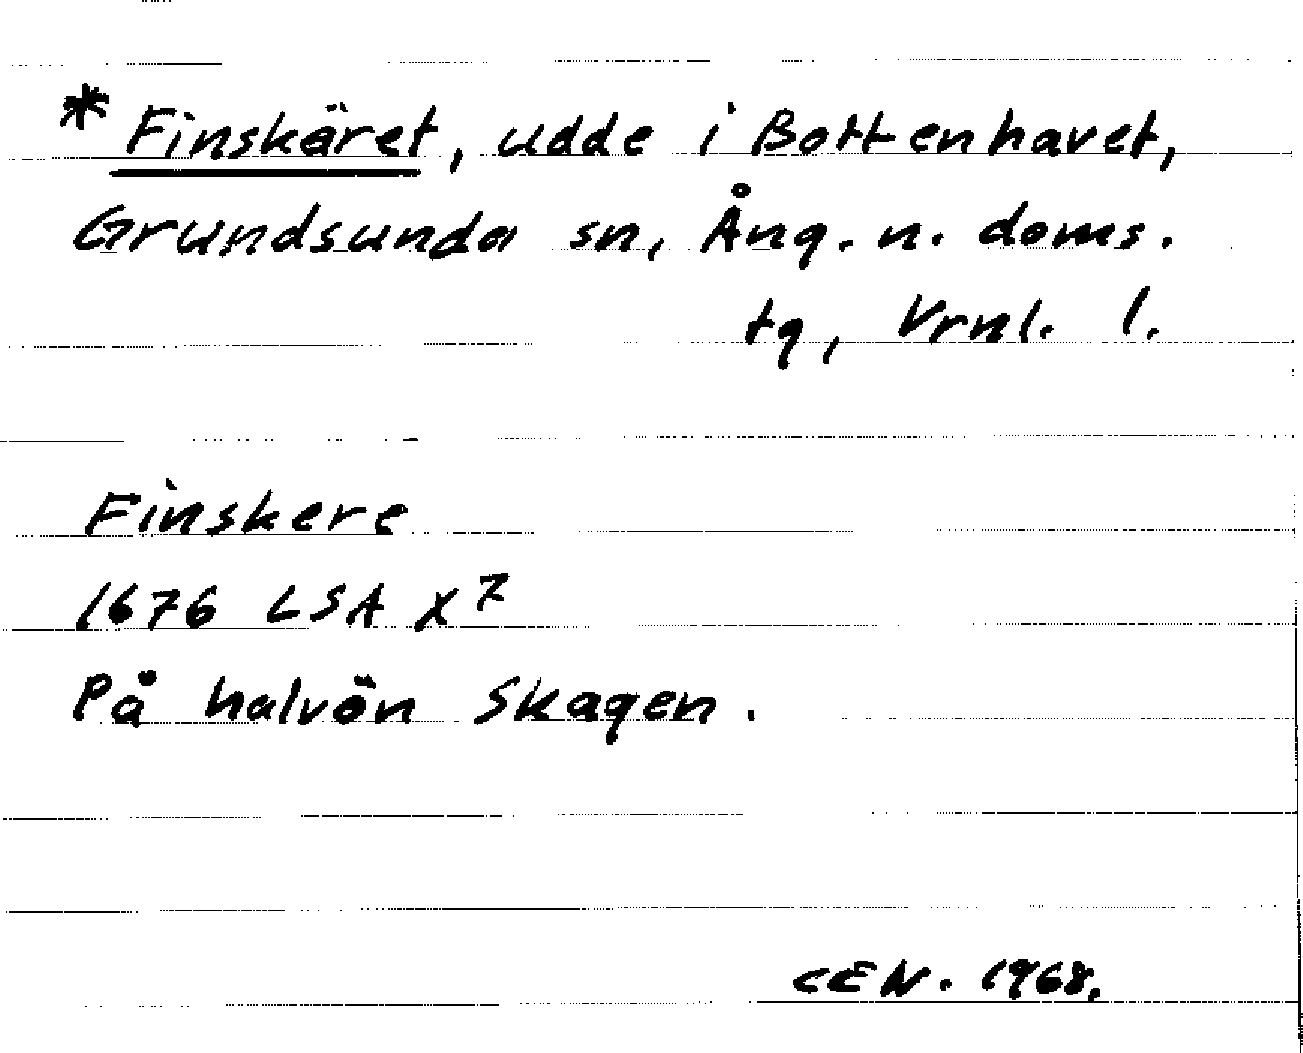 * Finskäret, udde i Bottenhavet,
Grundsunda sn, Ång. n. doms.
tg, Vrnl. l.
Finskere
1676 LSA X 7
På halvön Skagen.
CEN. 1968.